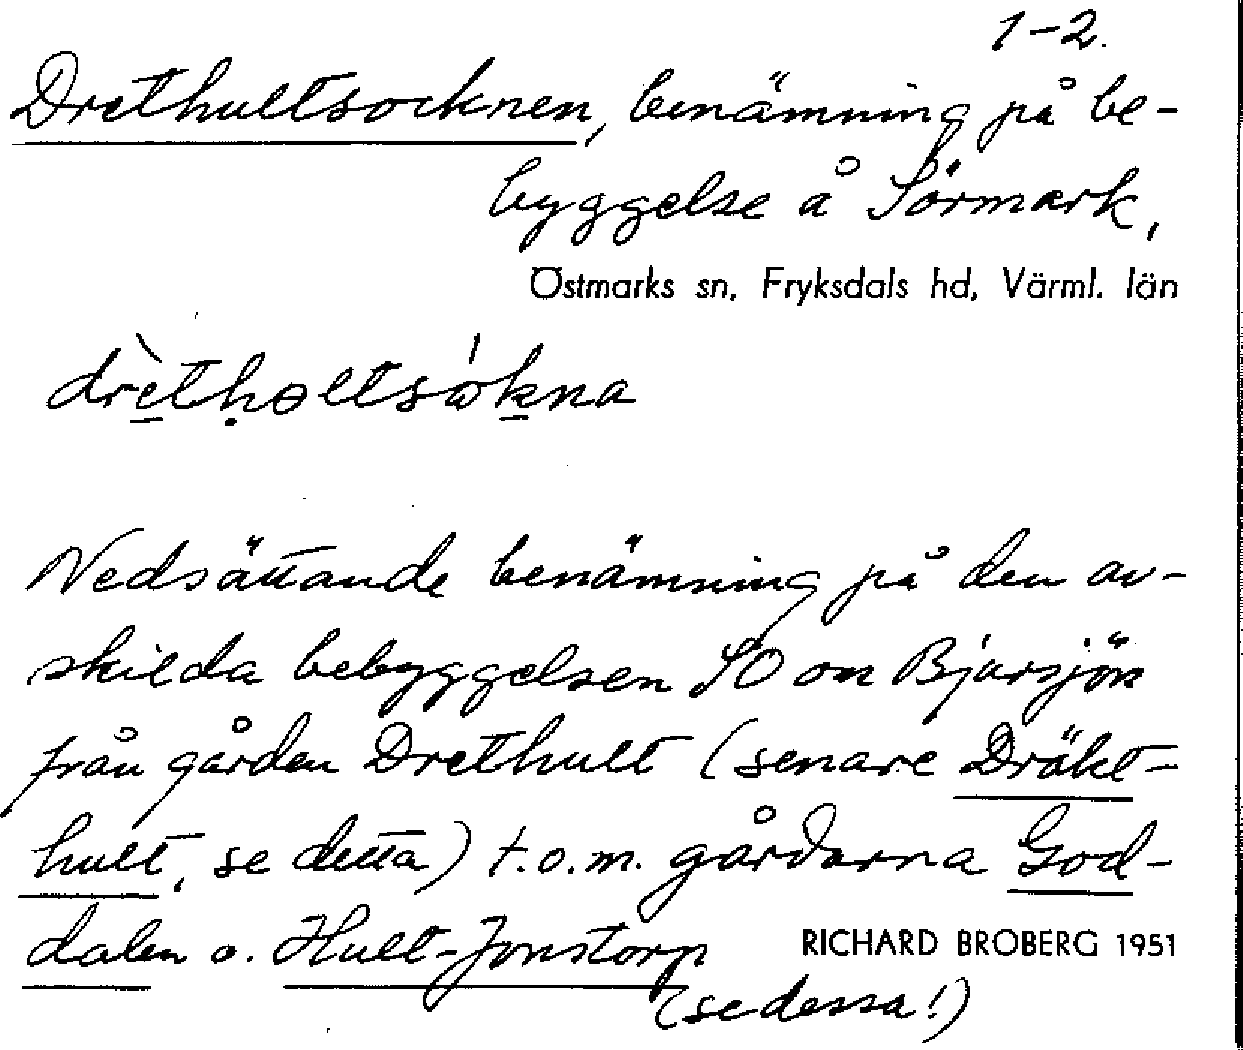 1-2.
Drethultsocknen, benämning på be-
byggelse å Sörmark,
Östmarks sn, Fryksdals hd, Värml. län
drèthɵltsə́kna
Nedsättande benämning på den av-
skilda bebyggelsen SO om Bjursjön
från gården Drethult (senare Dräkt-
hult, se detta) t.o.m. gårdarna God-
dalen o. Hult-Jonstorp
RICHARD BROBERG 1951
(se dessa!)